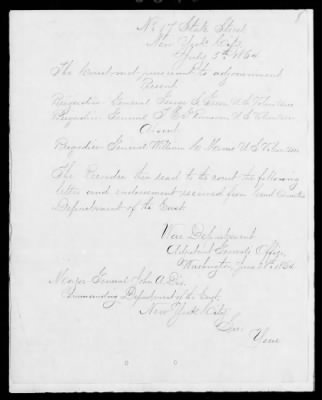 8
No 17 State Street
New York City
July 5th 1864
The Court met pursuant to adjournment
Present
Brigadier General George S. Green U.S. Volunteers
Brigadier General F. E. U.S. Volunteers
Absent
Brigadier General William H. Morris U.S. Volunteers
The Recorder then read to the court the following
letter and endorsement received from Head Quarters
Department of the East
War Department
Adjutant General's Office,
Washington June 1864
Major General John A. Dix.
Commanding Department of the East,
New York City
Sir.
Your